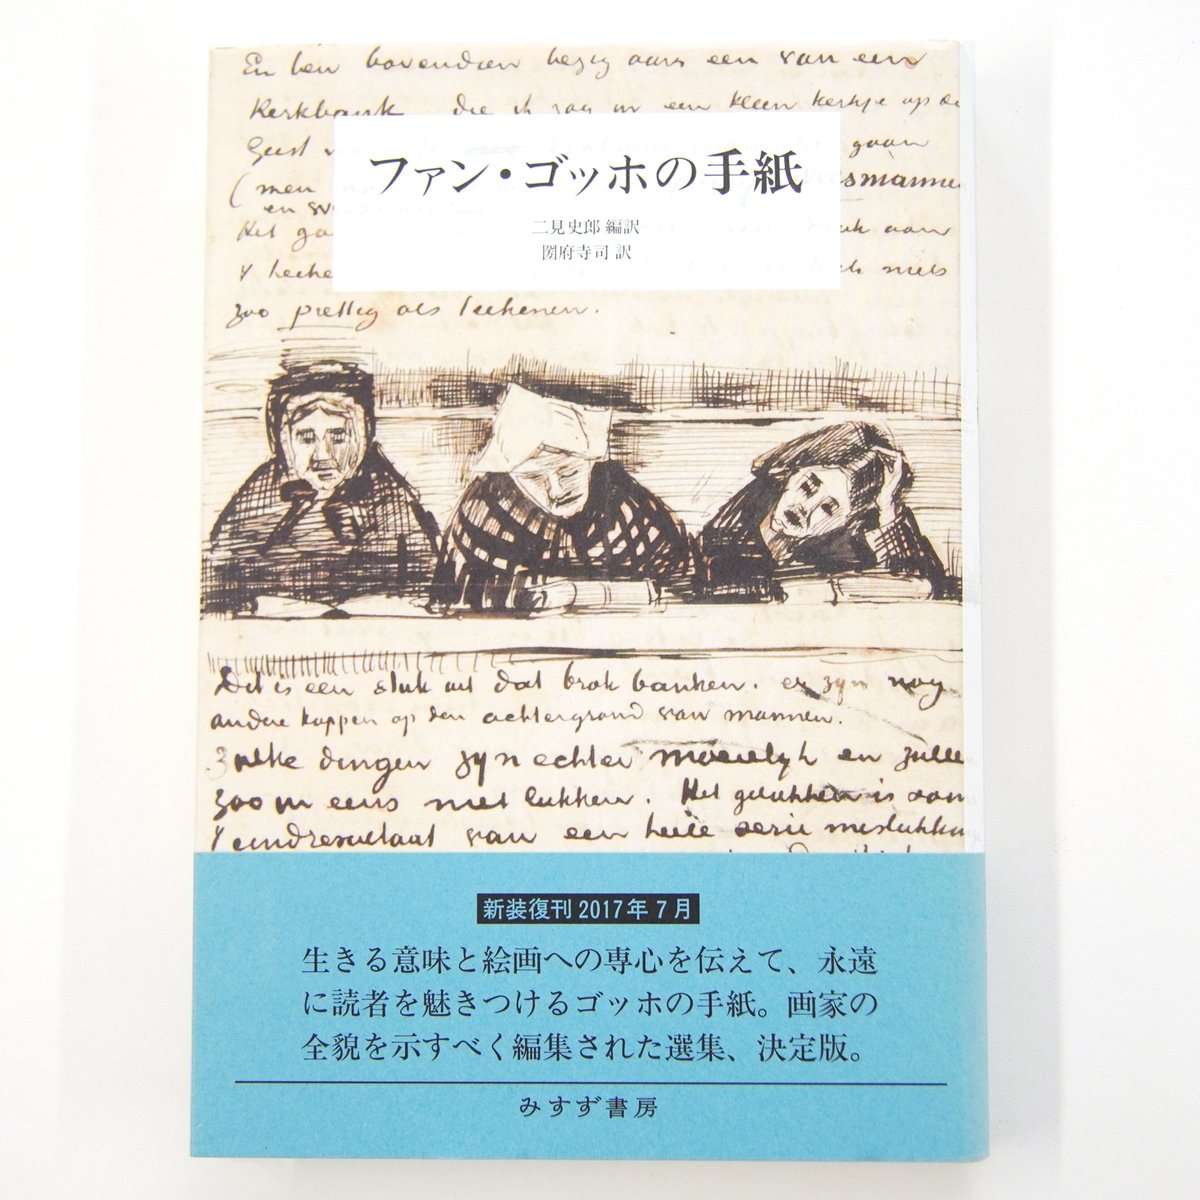 En ben bovendien bezig aan een van een
Kerkbank die ik zag in een klein kerkje op de
Geest gaan
ファン・ゴッホの手紙
(men smannen
en
二見史郎 編訳
Het aan
圀府寺司 訳
niets
zoo prettig als teekenen.
Dit is een stuk uit dat brok banken. er zyn nog
andere koppen op den achtergrond van mannen.
Zulke dingen zyn echter moeielyk en zullen
zoo in eens niet lukken. Het gelukken is soms
't eindresultaat van een heele serie mislukken
新装復刊 2017年7月
生きる意味と絵画への専心を伝えて、永遠
に読者を魅きつけるゴッホの手紙。画家の
全貌を示すべく編集された選集、決定版。
みすず書房